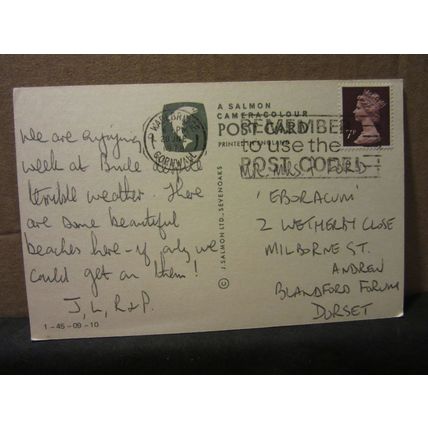 A SALMON
CAMERACOLOUR
POST CARD
PRINTED IN ENGLAND
REMEMBER
to use the
POST CODE
7P
WADEBRIDGE
CORNWALL
We are enjoying
week at Bude despite
terrible weather. There
are some beautiful
beaches here - if only we
could get on them!
J, L, R & P.
1-45-09-10
© J. SALMON LTD., SEVENOAKS
MR. MRS T. FORD
'EBORACUM'
2 WETHERBY CLOSE
MILBORNE ST.
ANDREW
BLANDFORD FORUM
DORSET